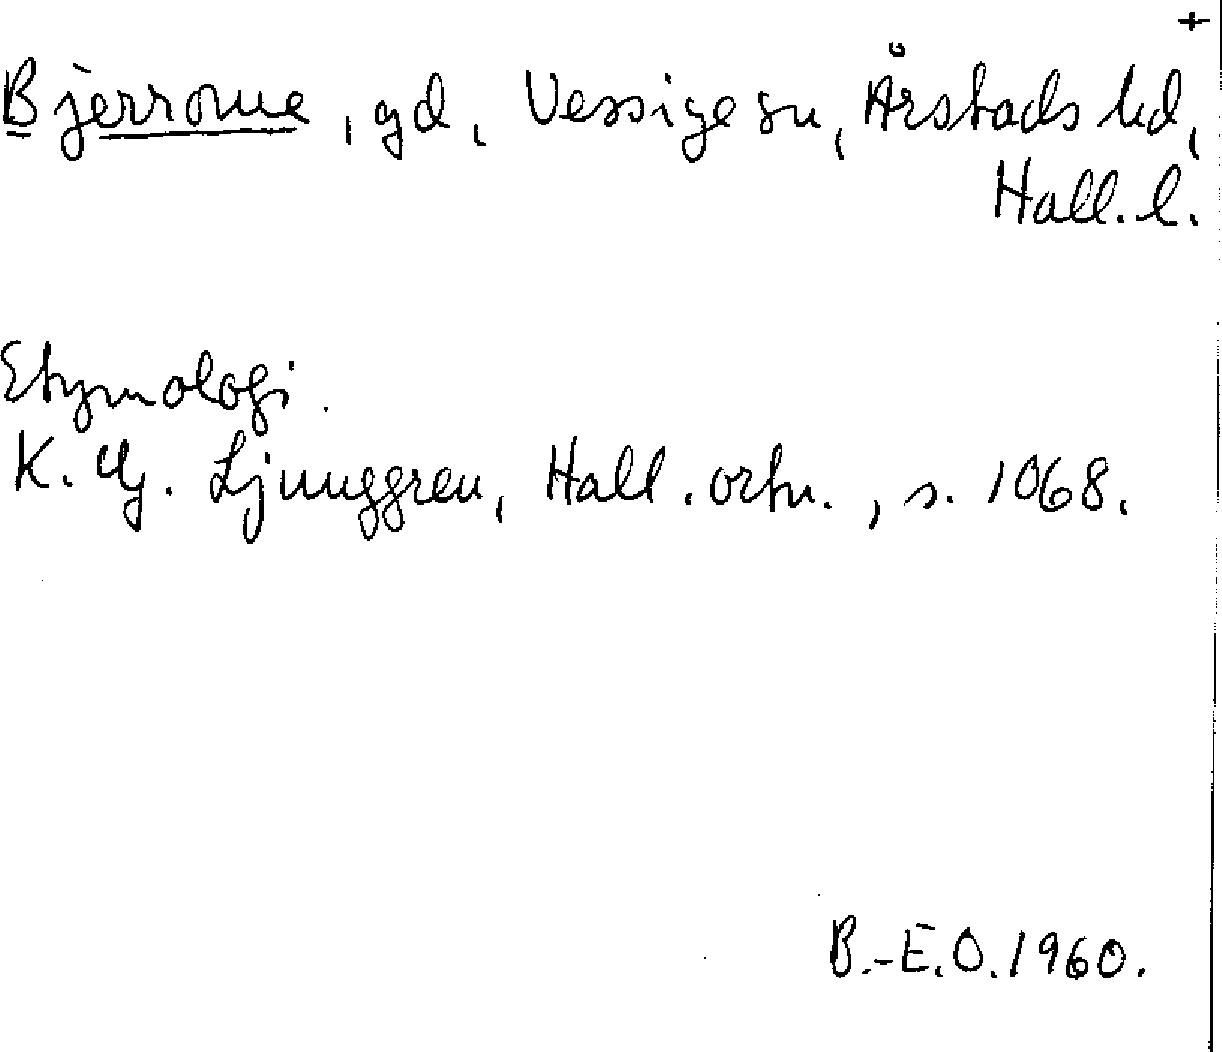 +
Bjerrome, gd, Vessige sn, Årstads hd,
Hall. l.
Etymologi.
K. G. Ljunggren, Hall. ortn., s. 1068.
B.-E.O.1960.